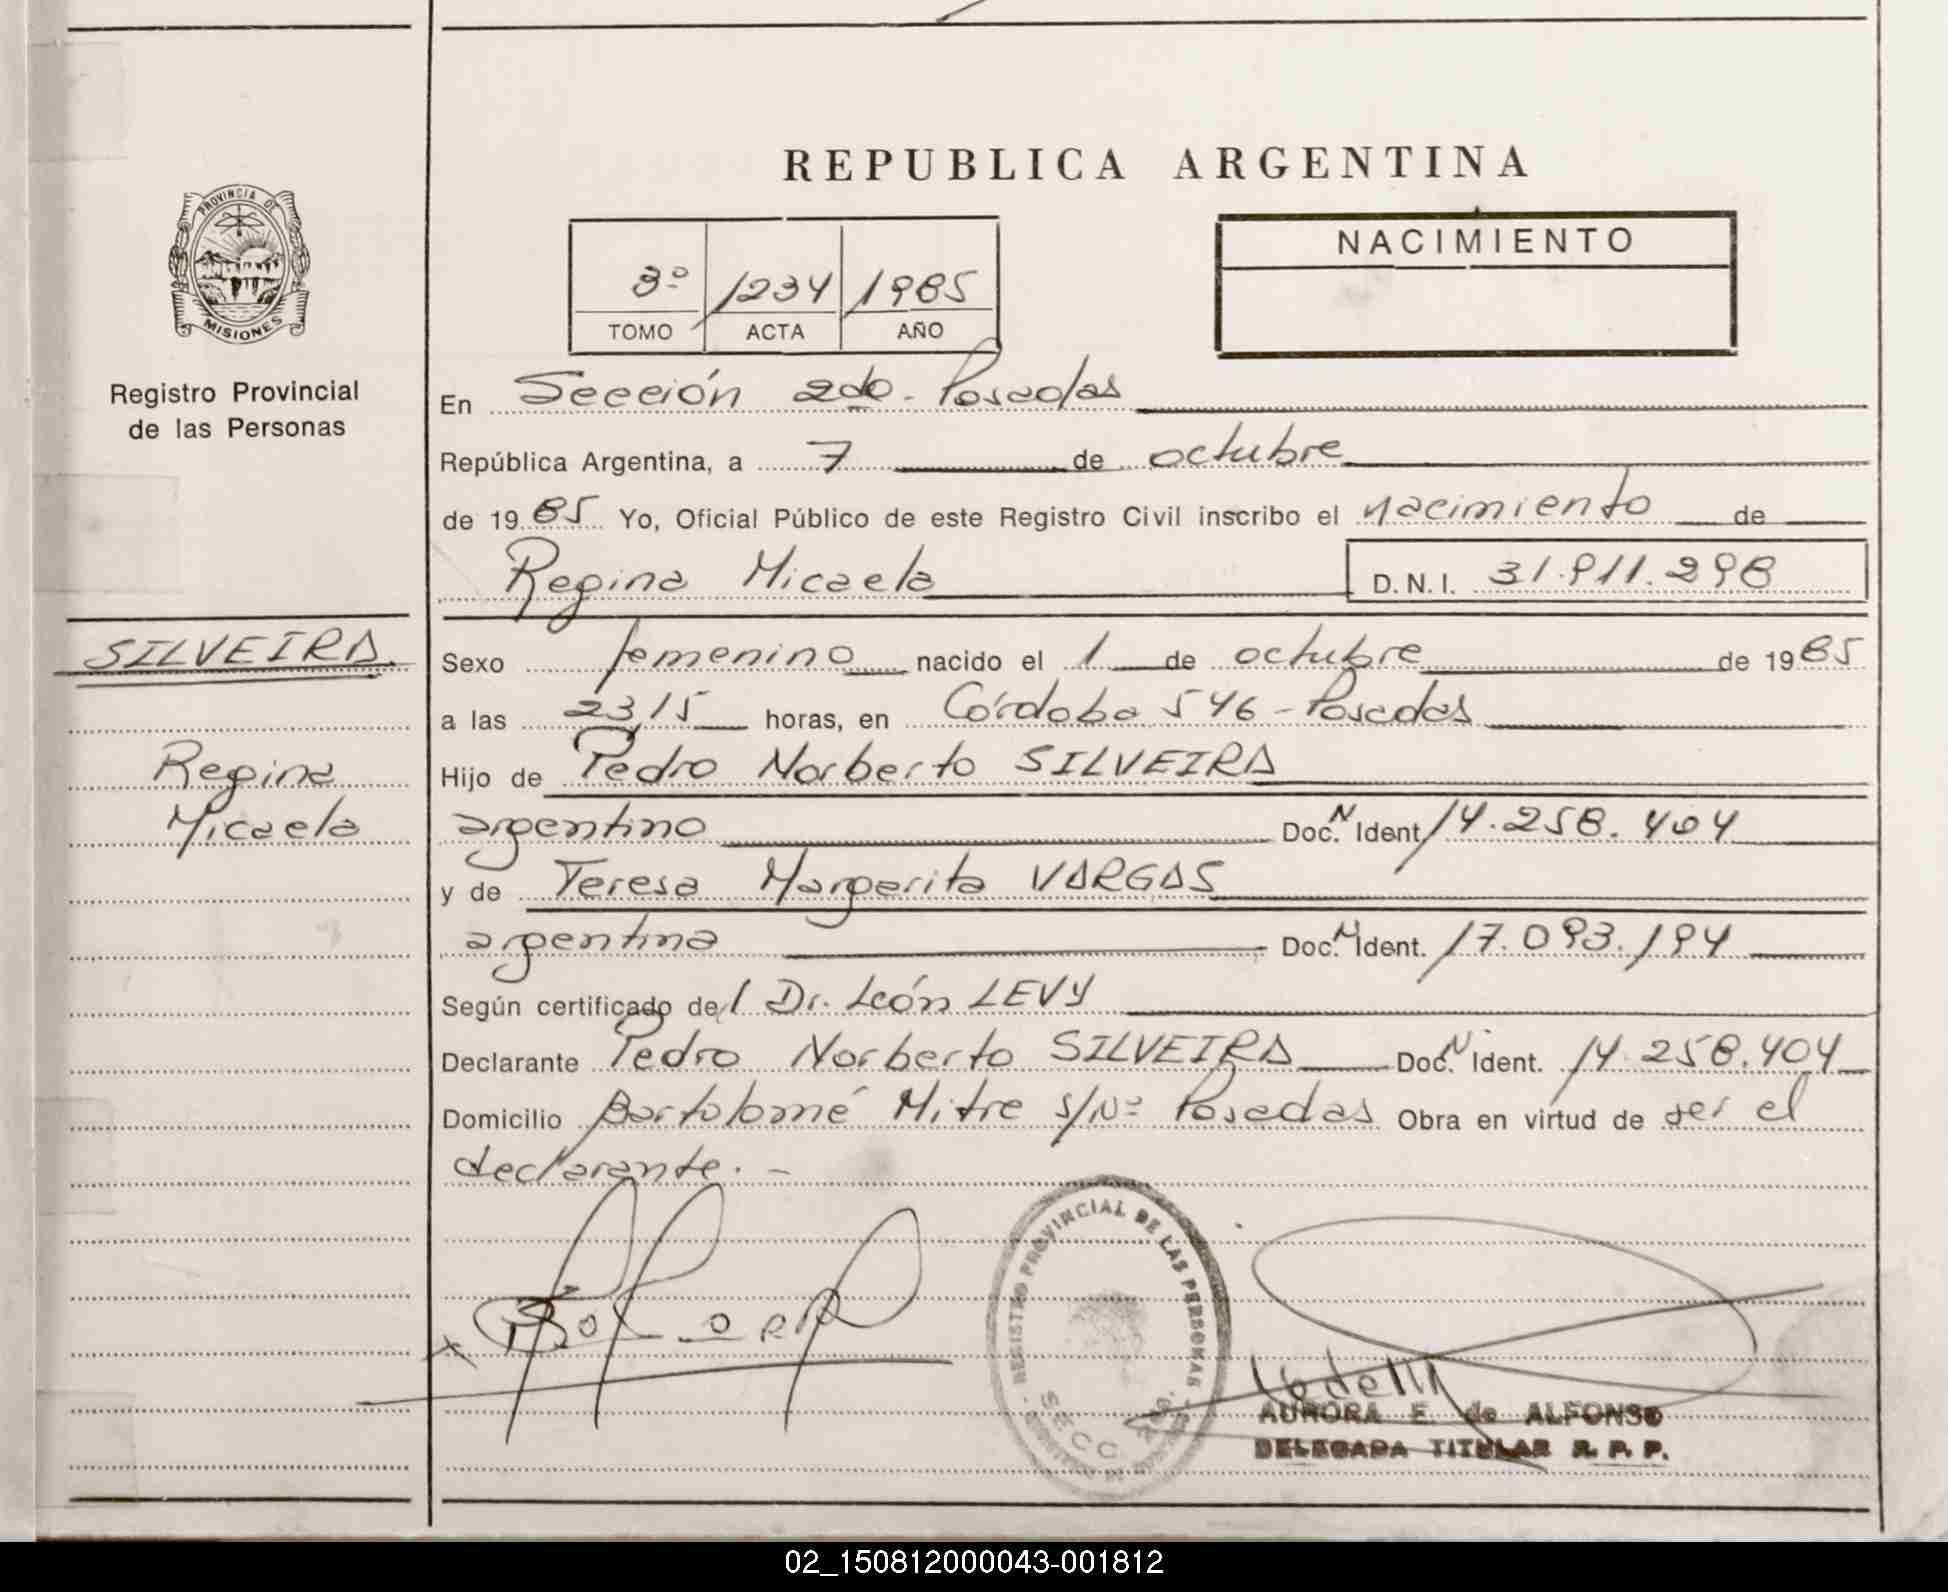 REPUBLICA ARGENTINA
PROVINCIA DE
MISIONES
Registro Provincial
de las Personas
3º 1234 1985
TOMO ACTA AÑO
NACIMIENTO
En Sección 2da. Posadas
República Argentina, a 7 de octubre
de 1985 Yo, Oficial Público de este Registro Civil inscribo el nacimiento de
Regina Micaela D.N.I. 31.911.298
SILVEIRA
Regina
Micaela
Sexo femenino nacido el 1 de octubre de 1985
a las 23,15 horas, en Córdoba 546 - Posadas
Hijo de Pedro Norberto SILVEIRA
argentino Doc. N Ident 14.258.404
y de Teresa Margarita VARGAS
argentina Doc. N Ident. 17.093.194
Según certificado del Dr. León LEVY
Declarante Pedro Norberto SILVEIRA Doc. N Ident. 14.258.404
Domicilio Bartolomé Mitre s/Nº Posadas Obra en virtud de ser el
declarante. -
REGISTRO PROVINCIAL DE LAS PERSONAS
SECC. 2da.
AURORA E. de ALFONSO
DELEGADA TITULAR R. P. P.
02_150812000043-001812